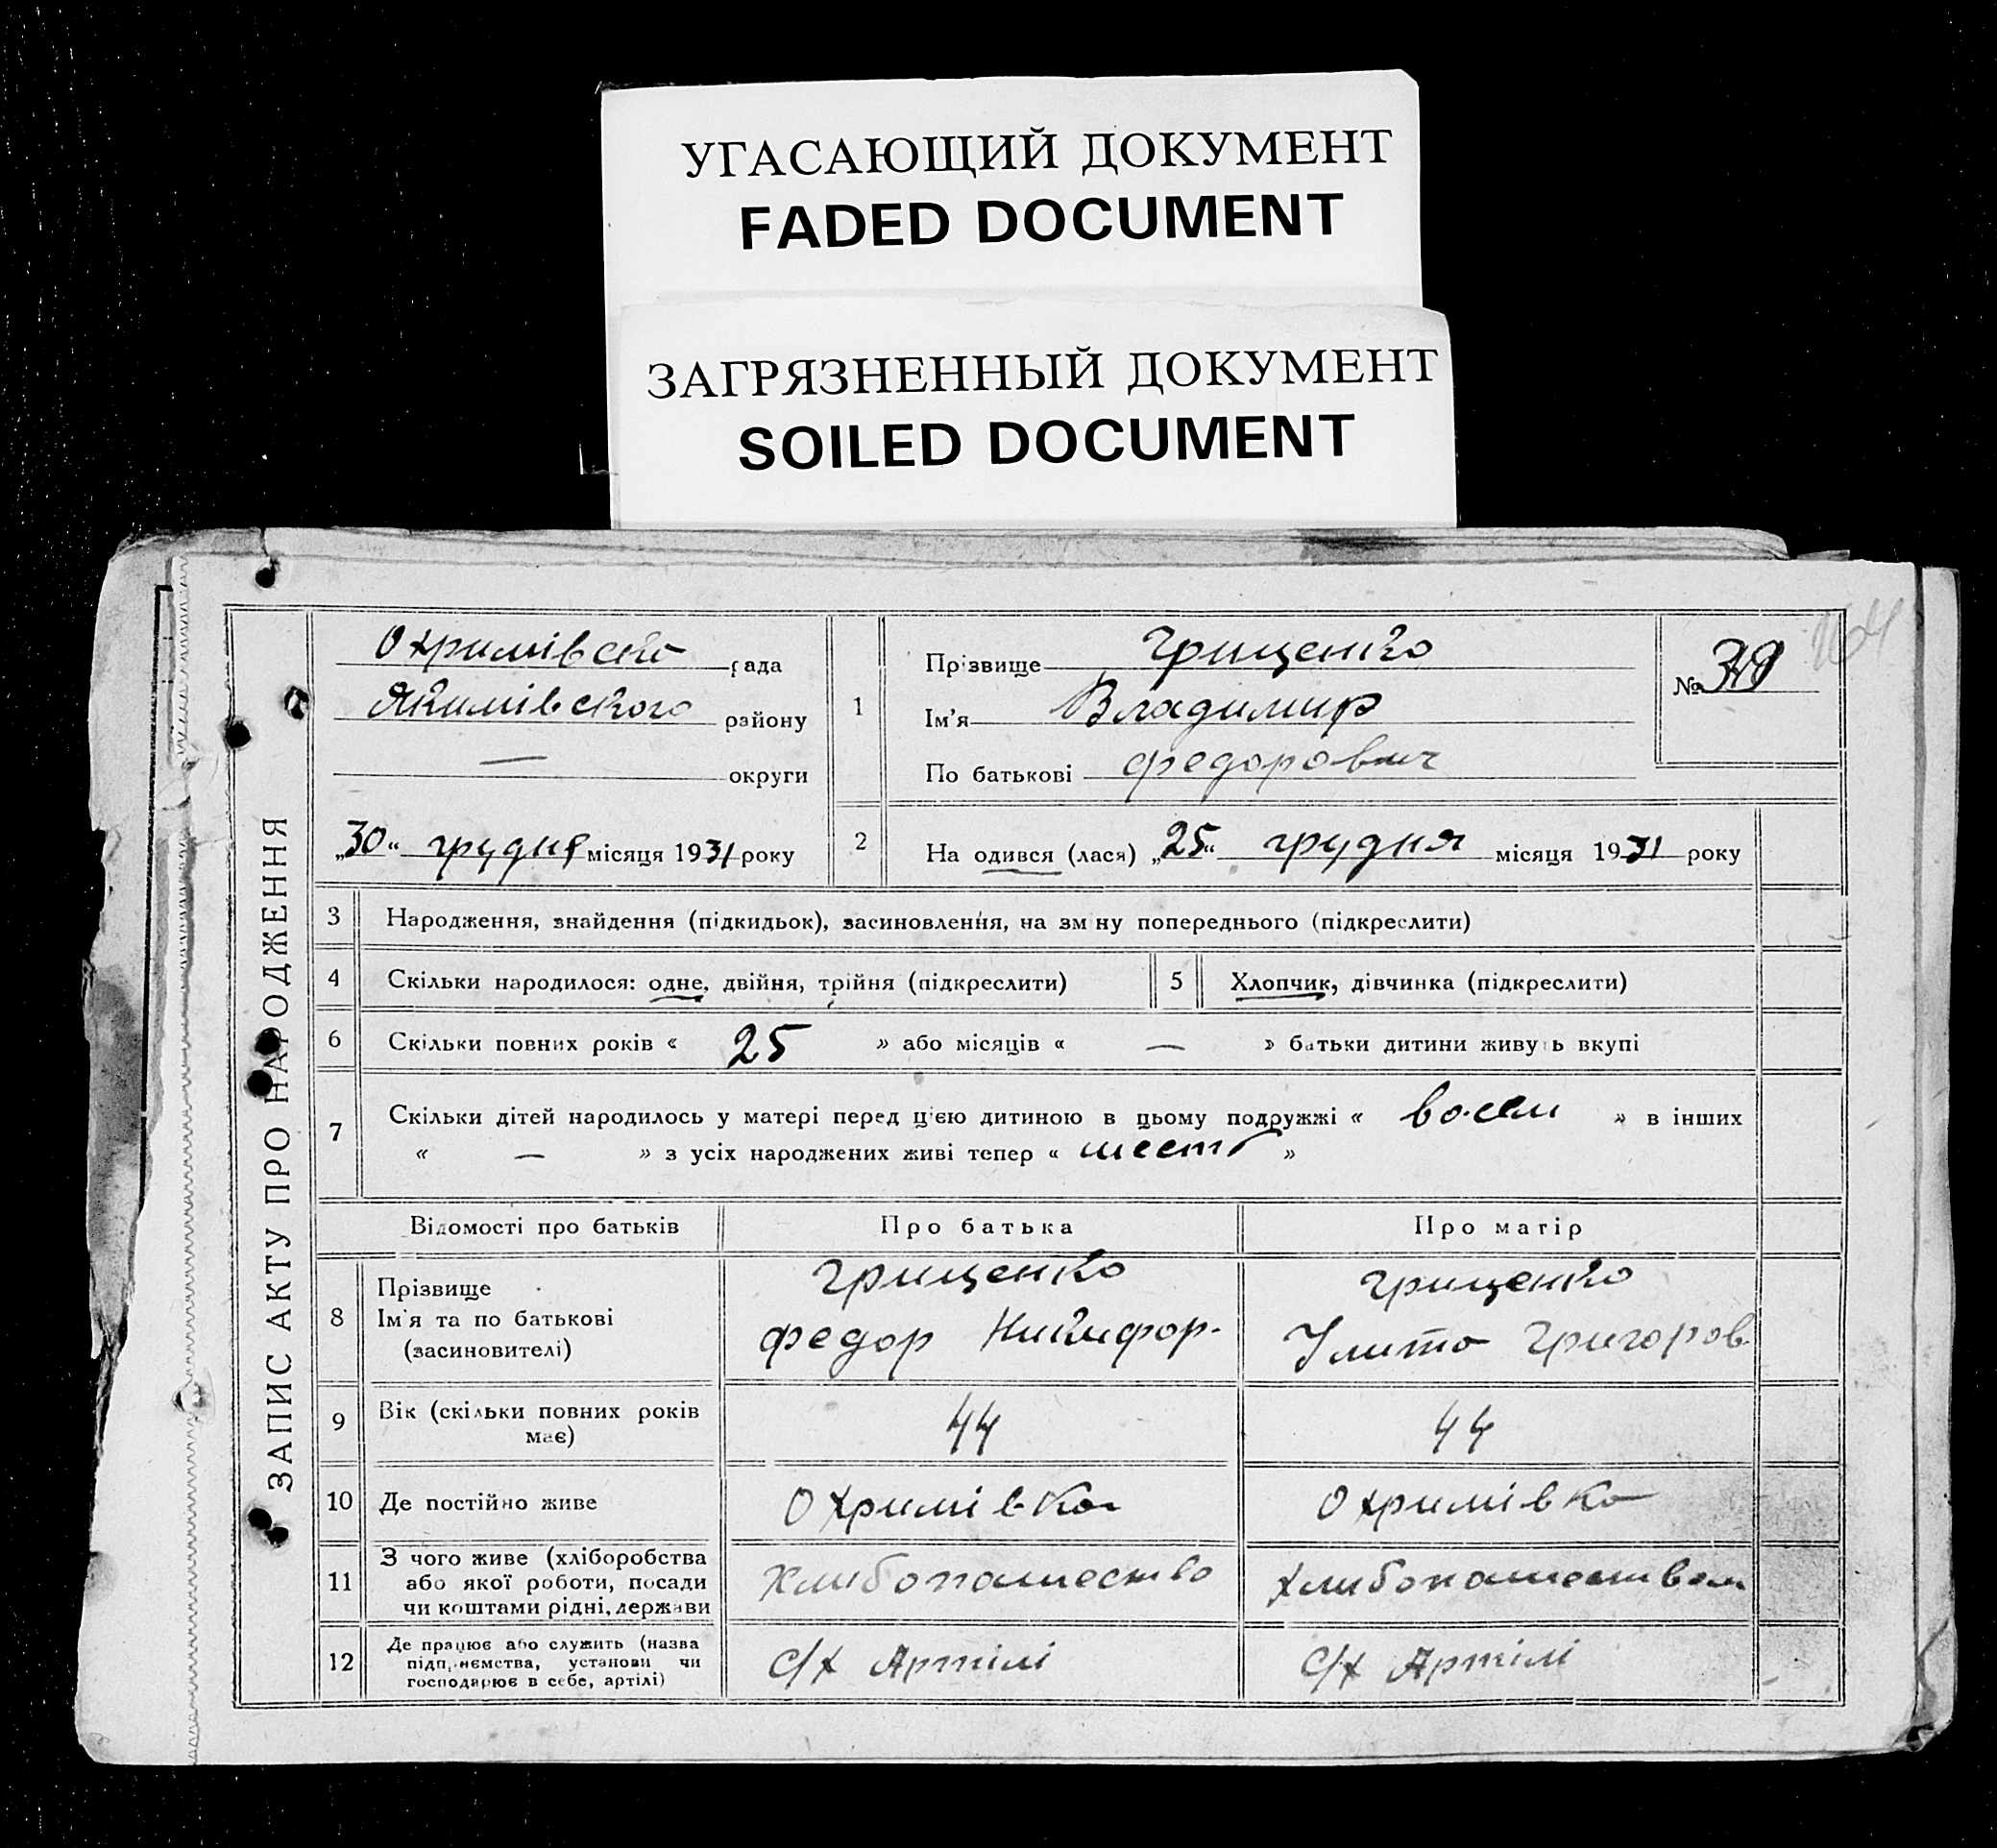 УГАСАЮЩИЙ ДОКУМЕНТ
FADED DOCUMENT
ЗАГРЯЗНЕННЫЙ ДОКУМЕНТ
SOILED DOCUMENT
164
ЗАПИС АКТУ ПРО НАРОДЖЕННЯ
Охримівсько рада
Якимівского району
— округи
„30“ грудня місяця 1931 року
1
Прізвище Грищенко
Ім'я Владимир
По батькові Федорович
№
2 На одився (лася) „25“ грудня місяця 1931 року
3 Народження, знайдення (підкидьок), засиновлення, на зм ну попереднього (підкреслити)
4 Скільки народилося: одне, двійня, трійня (підкреслити) 5 Хлопчик, дівчинка (підкреслити)
6 Скільки повних років « 25 » або місяців « — » батьки дитини живуть вкупі
7 Скільки дітей народилось у матері перед цією дитиною в цьому подружжі « восем » в інших
« — » з усіх народжених живі тепер « шесть »
Відомості про батьків Про батька Про матір
8 Прізвище Грищенко Грищенко
Ім'я та по батькові Федор Никифор. Улито Григоров.
(засиновителі)
9 Вік (скільки повних років 44 44
має)
10 Де постійно живе Охримівка Охримівка
11 З чого живе (хліборобства Хлибопашество Хлибопашеством
або якої роботи, посади
чи коштами рідні, держави
12 Де працює або служить (назва С/х Артілі С/х Артілі
підприємства, установи чи
господарює в себе, артілі)